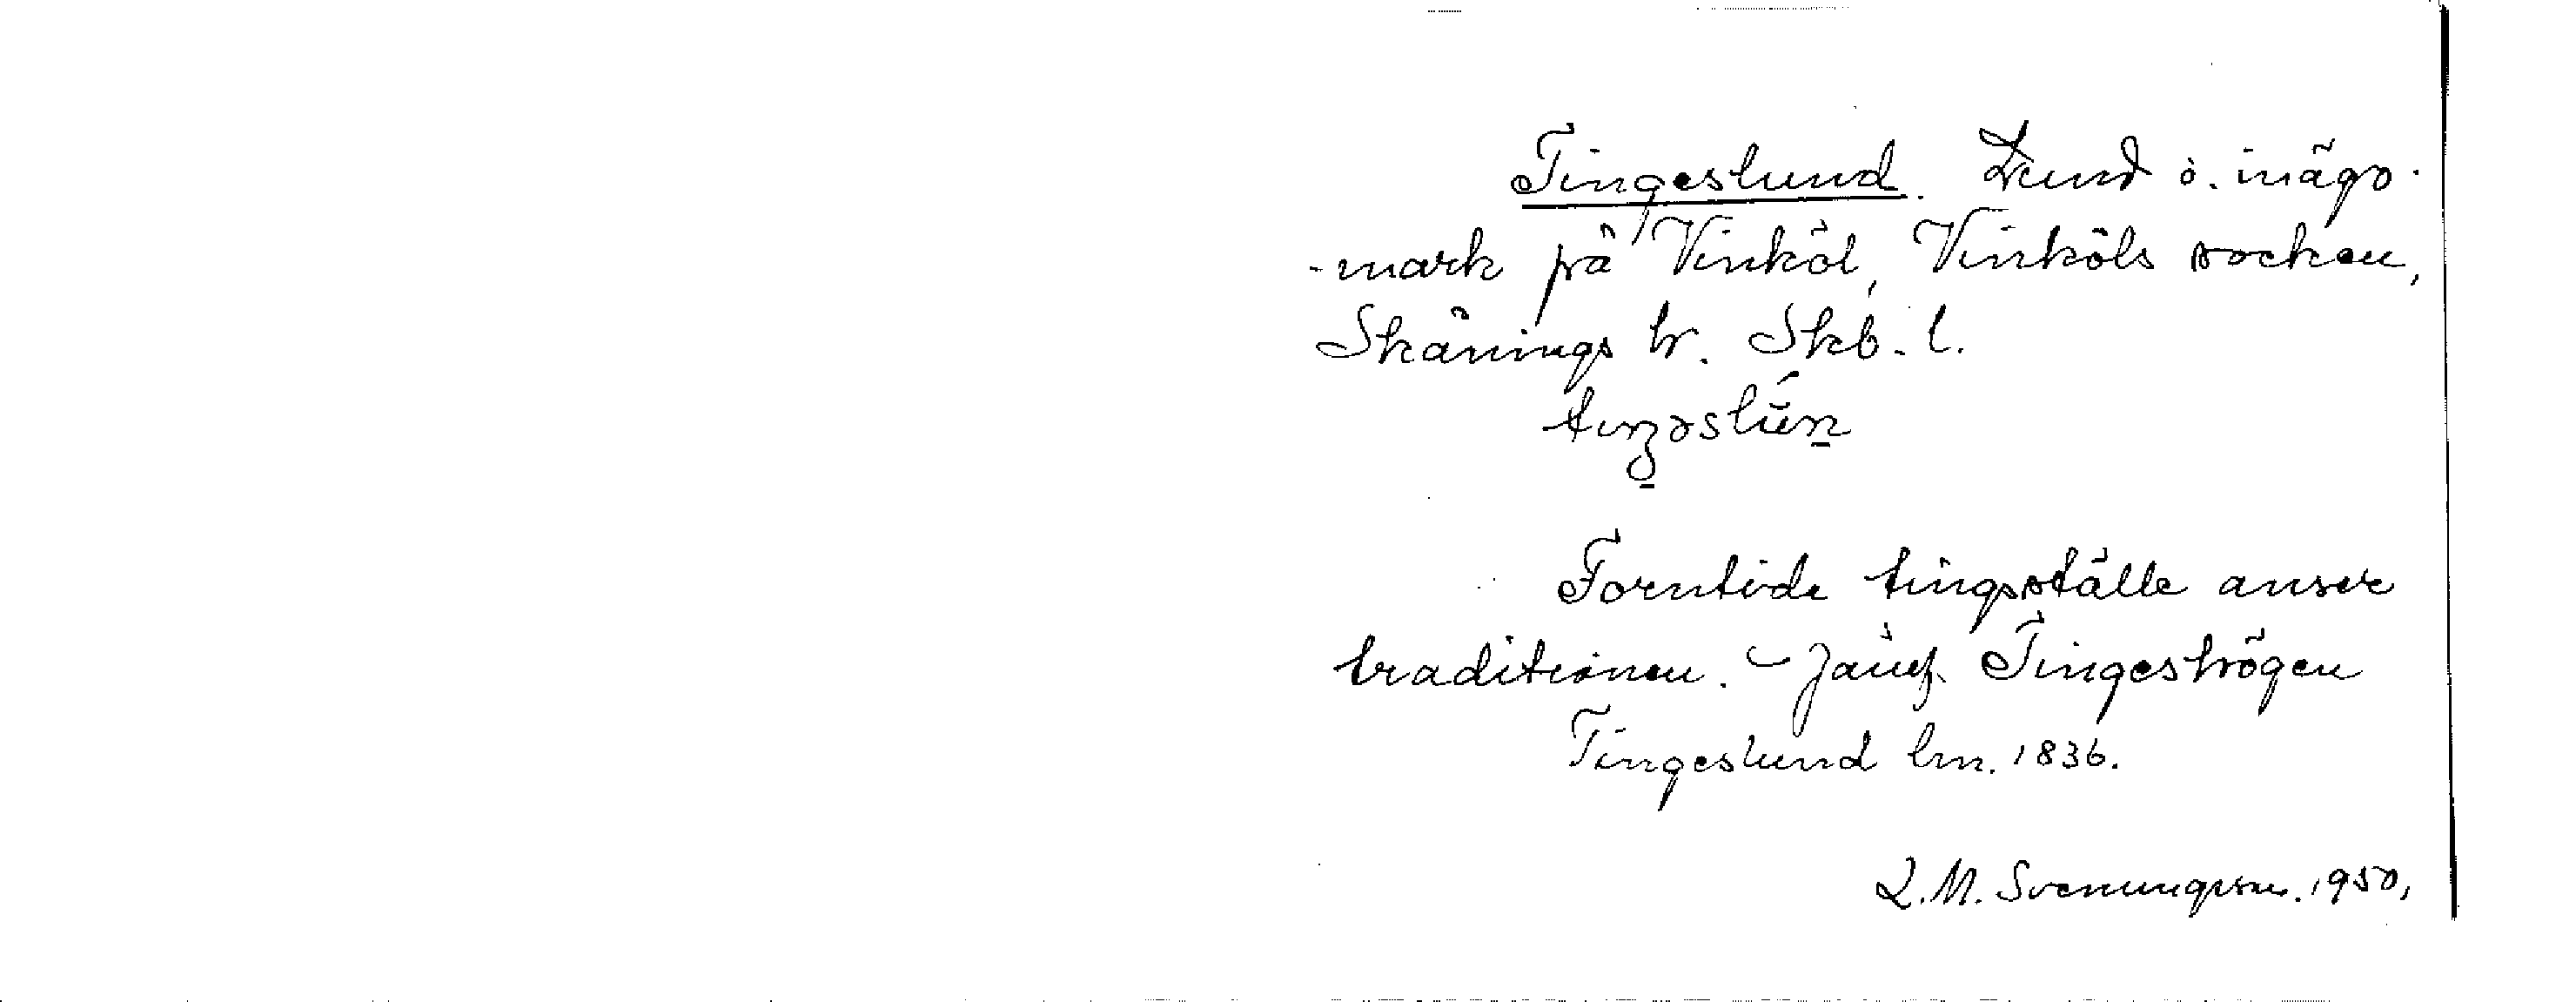 Tingeslund. Lund o. inägo-
-mark på Vinköl, Vinköls socken,
Skånings hr. Skb. l.
Forntida tingsställe anser
traditionen. – Jämf. Tingeshögen
Tingeslund lm. 1836.
L.M. Svenungsson. 1950.